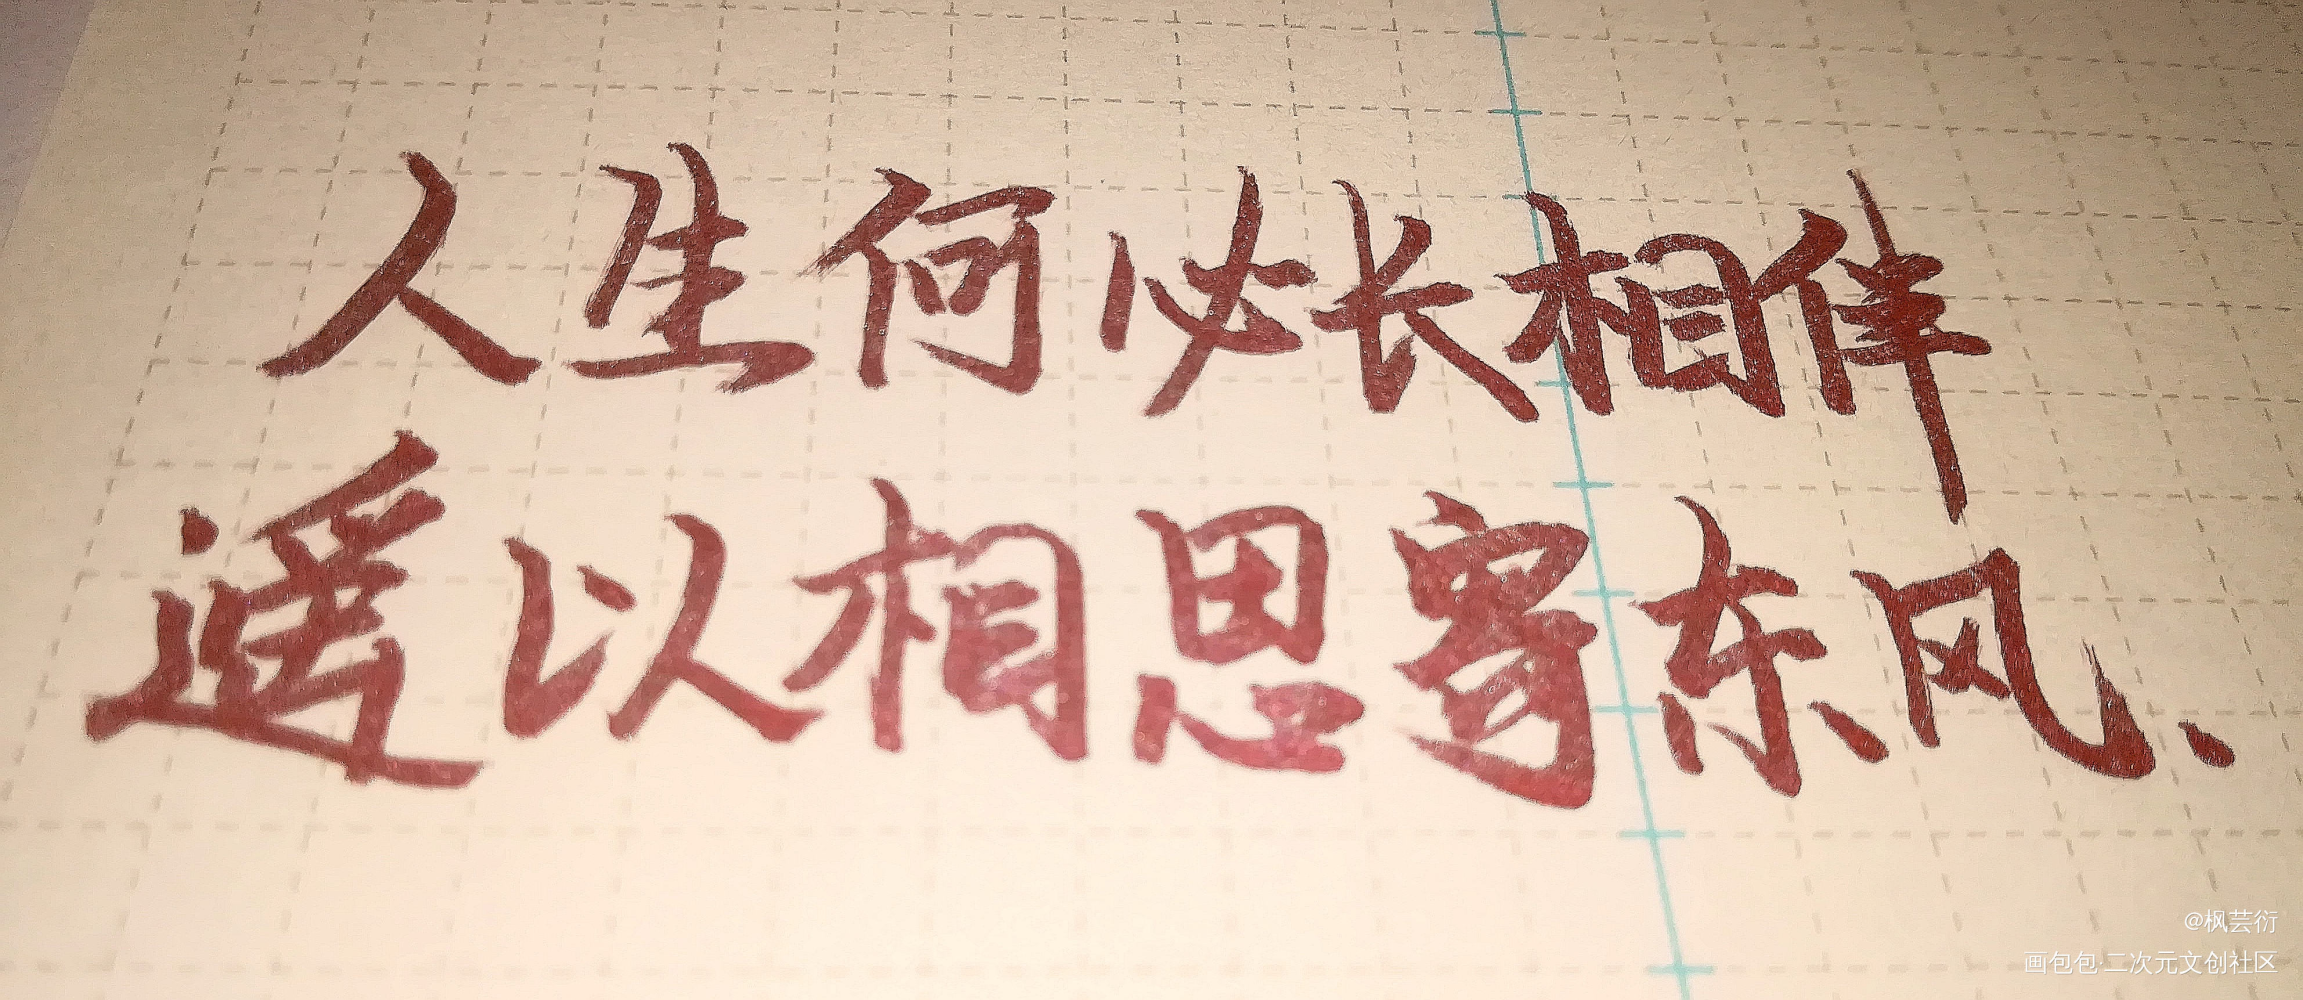 人生何必长相伴
遥以相思寄东风、
@枫芸衍
画包包·二次元文创社区